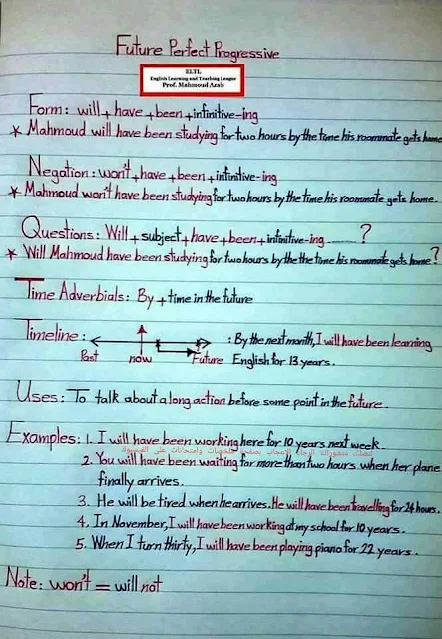 Future Perfect Progressive
ELTL
English Learning and Teaching League
Prof. Mahmoud Azab
Form: will + have + been + infinitive-ing
* Mahmoud will have been studying for two hours by the time his roommate gets home
Negation: won't + have + been + infinitive-ing
* Mahmoud won't have been studying for two hours by the time his roommate gets home.
Questions: Will + subject + have + been + infinitive-ing ......... ?
* Will Mahmoud have been studying for two hours by the the time his roommate gets home?
Time Adverbials: By + time in the future
Timeline: : By the next month, I will have been learning
Past now Future English for 13 years.
Uses: To talk about a long action before some point in the future.
Examples: 1. I will have been working here for 10 years next week.
الرجاء الاعجاب بصفحة ملخصات وامتحانات على الفيسبوك
2. You will have been waiting for more than two hours when her plane
finally arrives.
3. He will be tired when he arrives. He will have been travelling for 24 hours.
4. In November, I will have been working at my school for 10 years.
5. When I turn thirty, I will have been playing piano for 22 years.
Note: won't = will not